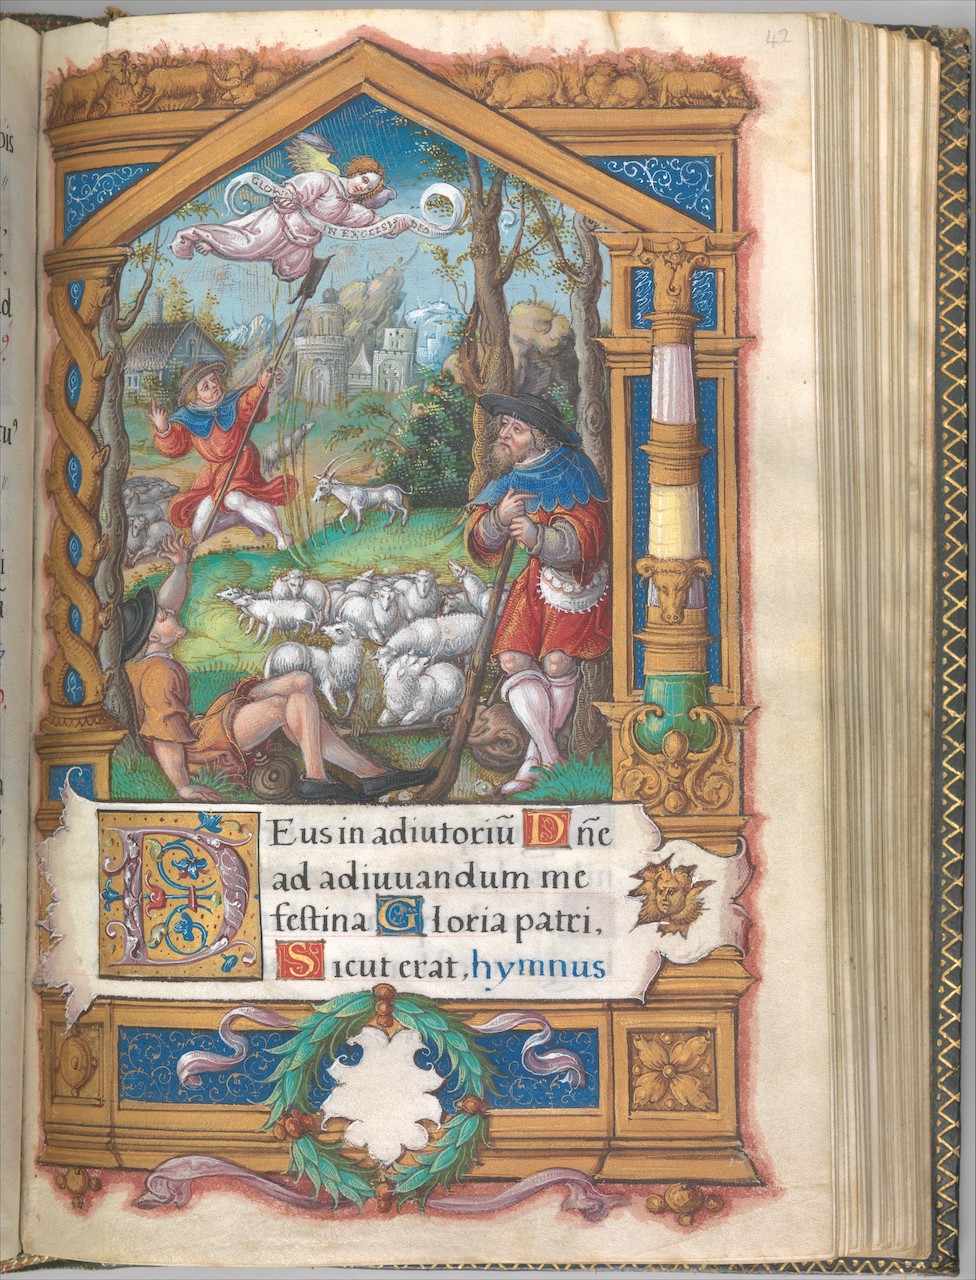 42
GLORIA
IN EXCELSIS DEO
DEus in adiutoriū Dn̄e
ad adiuuandum me
festina, Gloria patri,
Sicut erat, hymnus